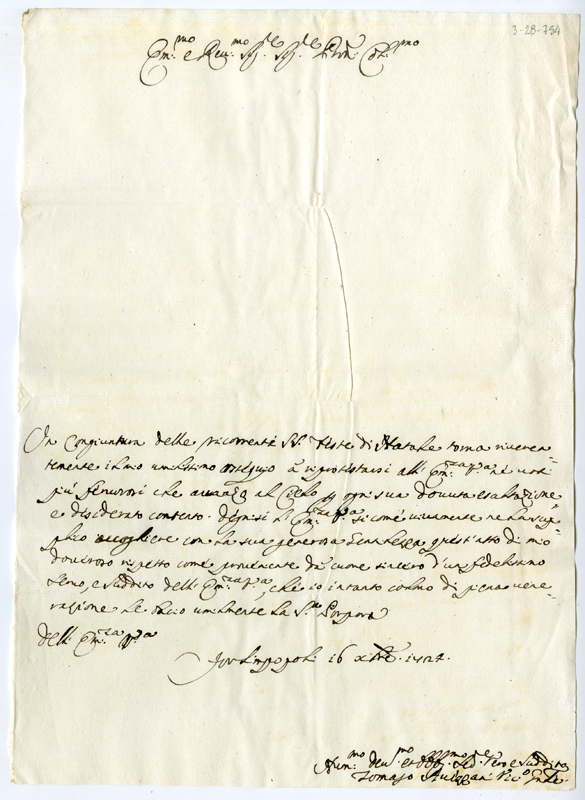 3-28-754
Em:mo e Reu:mo Sig:re Sig:re Pron: Col:mo
In Congiuntura delle ricorrenti SS. Feste di Natale torna riueren-
temente il mio umilissimo ossequio à riprotestarsi all' Em:za V:ra ne uoti
più feruorosi che auanzo al Cielo p ogni sua douuta esaltazione
e desiderato contento. Degnisi l' Em:za V:ra si come uiuamente ne la sup-
plico accogliere con la sua generosa Grandezza quest' atto di mio
doueroso rispetto come proueniente da cuore sincero d'un fedelissimo
seruo, e suddito dell' Em:za V:ra, che io intanto colmo di piena uene-
razione le bacio umilmente la S:ra Porpora
dell' Em:za V:ra
Forlimpopoli 16 Xbre 1724.
Hum:mo deu:mo et obbl:mo Se:re uero e Suddito
Tomaso